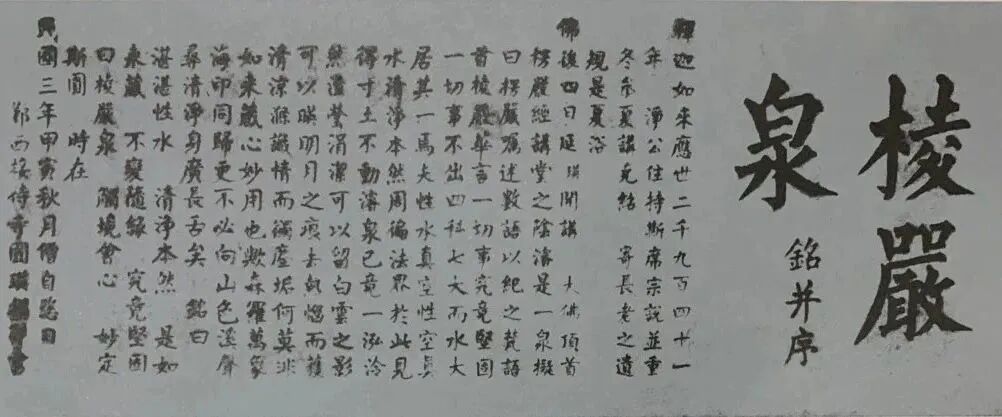 棱嚴
泉
銘并序
釋迦如來應世二千九百四十一
年 淨公住持斯席宗說並重
冬參夏講克結 寄長老之遺
規是夏浴
佛後四日延瑛開講 大佛頂首
楞嚴經講堂之陰濬是一泉擬
曰楞嚴囑述數語以紀之梵語
首棱嚴華言一切事究竟堅固
一切事不出四科七大而水大
居其一焉夫性水真空性空真
水清淨本然周徧法界於此見
得寸土不動濬泉已竟一泓泠
然澄瑩涓潔可以留白雲之影
可以暎明月之痕去熱惱而獲
清涼滌識情而蠲塵垢何莫非
如來藏心妙用也歟森羅萬象
海印同歸更不必向山色溪聲
尋清淨身廣長舌矣 銘曰
湛湛性水 清淨本然 是如
來藏 不變隨緣 究竟堅固
曰棱嚴泉 觸境會心 妙定
斯圓 時在
民國三年甲寅秋月僧自恣日
西接待寺圓瑛